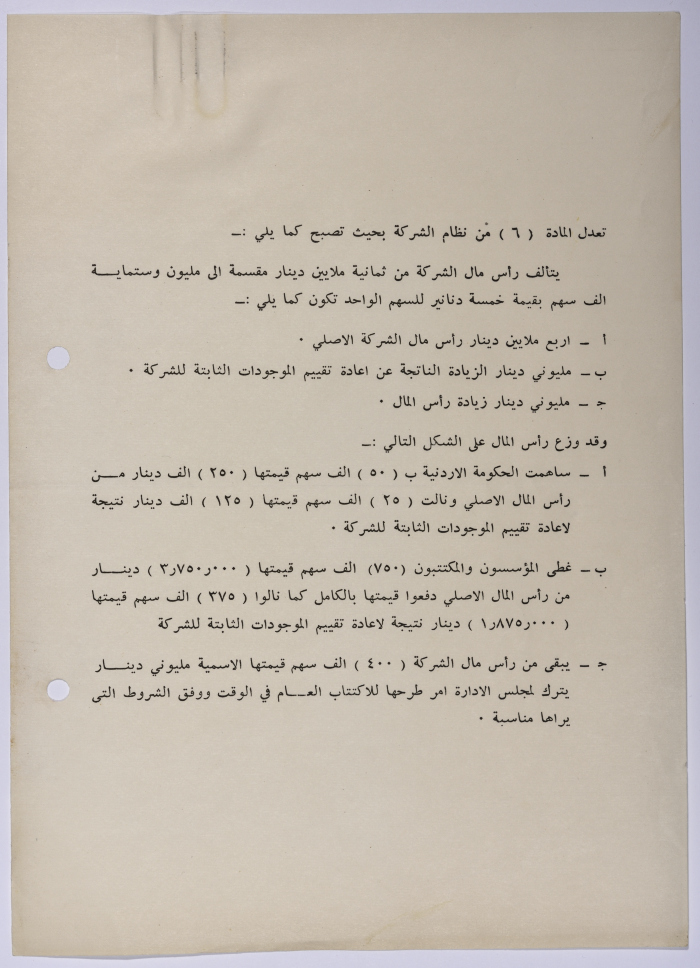 تعدل المادة ( ٦ ) من نظام الشركة بحيث تصبح كما يلي :ــ
يتألف رأس مال الشركة من ثمانية ملايين دينار مقسمة الى مليون وستمايـــة
الف سهم بقيمة خمسة دنانير للسهم الواحد تكون كما يلي :ــ
أ ــ اربع ملايين دينار رأس مال الشركة الاصلي ٠
ب ــ مليوني دينار الزيادة الناتجة عن اعادة تقييم الموجودات الثابتة للشركة ٠
جـ ــ مليوني دينار زيادة رأس المال ٠
وقد وزع رأس المال على الشكل التالي :ــ
أ ــ ساهمت الحكومة الاردنية ب ( ٥٠ ) الف سهم قيمتها ( ٢٥٠ ) الف دينار مـــن
رأس المال الاصلي ونالت ( ٢٥ ) الف سهم قيمتها ( ١٢٥ ) الف دينار نتيجة
لاعادة تقييم الموجودات الثابتة للشركة ٠
ب ــ غطى المؤسسون والمكتتبون (٧٥٠) الف سهم قيمتها ( ٣ر٧٥٠ر٠٠٠ ) دينـــار
من رأس المال الاصلي دفعوا قيمتها بالكامل كما نالوا ( ٣٧٥ ) الف سهم قيمتها
( ١ر٨٧٥ر٠٠٠ ) دينار نتيجة لاعادة تقييم الموجودات الثابتة للشركة
جـ ــ يبقى من رأس مال الشركة ( ٤٠٠ ) الف سهم قيمتها الاسمية مليوني دينـــار
يترك لمجلس الادارة امر طرحها للاكتتاب العـــام في الوقت ووفق الشروط التى
يراها مناسبة ٠